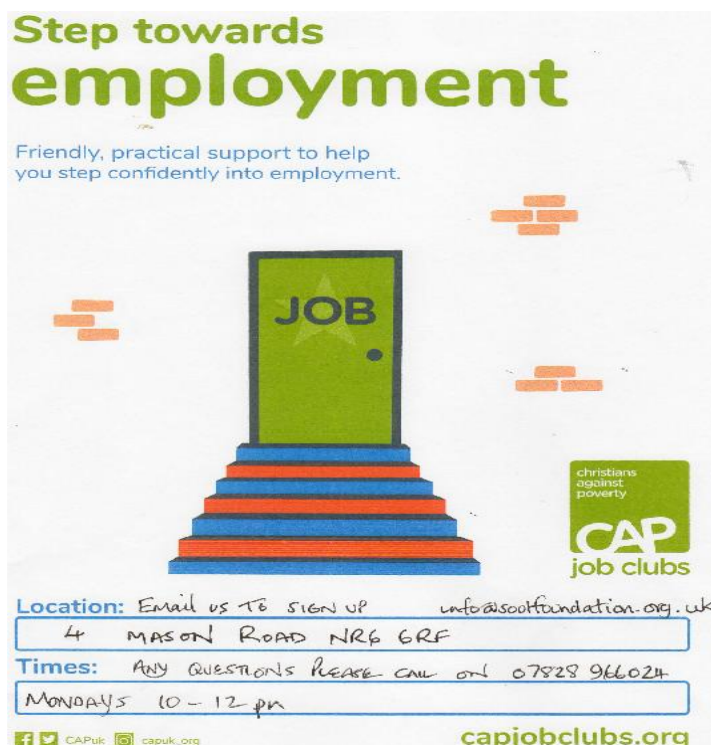 Step towards
employment
Friendly, practical support to help
you step confidently into employment.
JOB
christians
against
poverty
CAP
job clubs
Location: Email us TO SIGN UP info@sootfoundation.org.uk
4 MASON ROAD NR6 6RF
Times: ANY QUESTIONS PLEASE CALL ON 07828 966024
MONDAYS 10 - 12 pm
CAPuk capuk_org capjobclubs.org